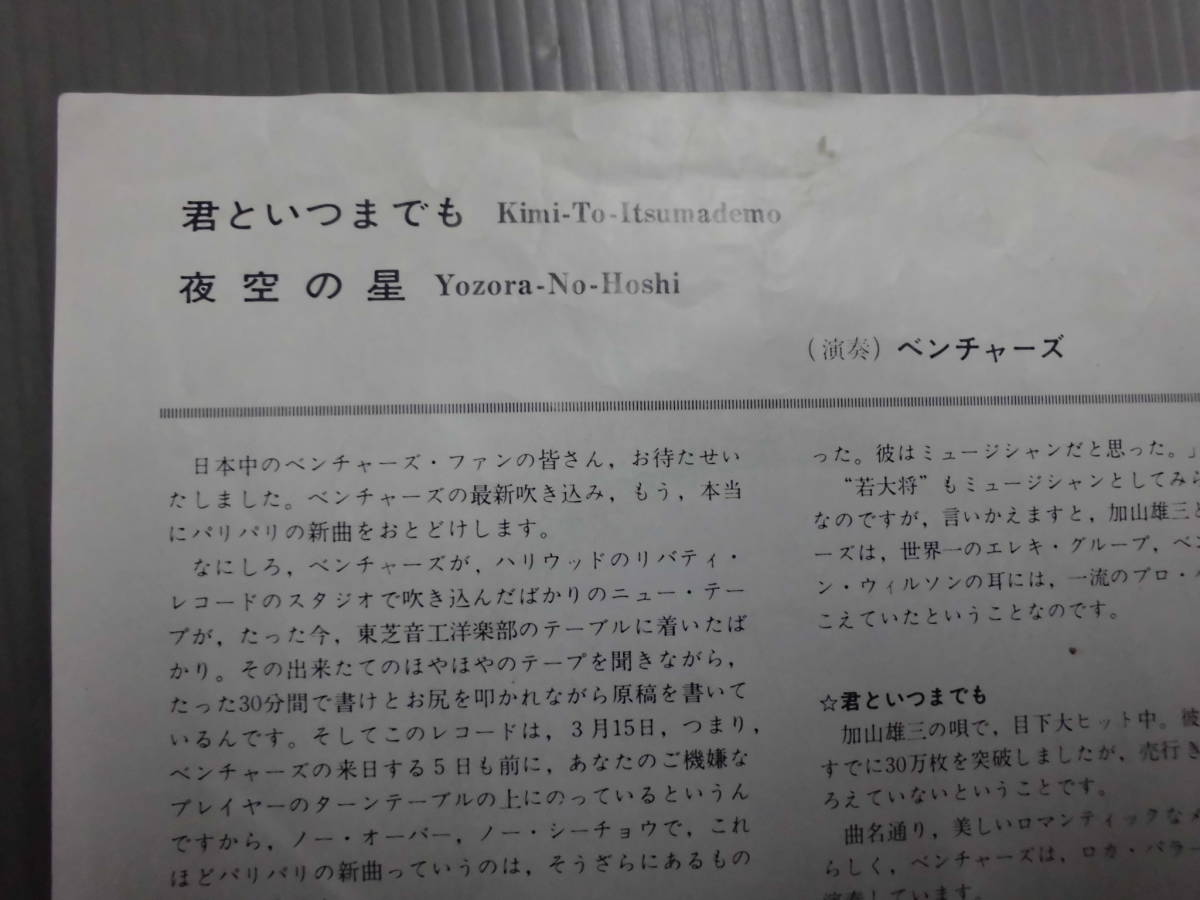 君といつまでも Kimi-To-Itsumademo
夜空の星 Yozora-No-Hoshi
(演奏) ベンチャーズ
日本中のベンチャーズ・ファンの皆さん，お待たせい
たしました。ベンチャーズの最新吹き込み，もう，本当
にバリバリの新曲をおとどけします。
なにしろ，ベンチャーズが，ハリウッドのリバティ・
レコードのスタジオで吹き込んだばかりのニュー・テー
プが，たった今，東芝音工洋楽部のテーブルに着いたば
かり。その出来たてのほやほやのテープを聞きながら，
たった30分間で書けとお尻を叩かれながら原稿を書いて
いるんです。そしてこのレコードは，3月15日，つまり，
ベンチャーズの来日する5日も前に，あなたのご機嫌な
プレイヤーのターンテーブルの上にのっているというん
ですから，ノー・オーバー，ノー・シーチョウで，これ
ほどバリバリの新曲っていうのは，そうざらにあるもの
った。彼はミュージシャンだと思った。」
“若大将”もミュージシャンとしてみら
なのですが，言いかえますと，加山雄三と
ーズは，世界一のエレキ・グループ，ベン
ン・ウィルソンの耳には，一流のプロ・
こえていたということなのです。
☆君といつまでも
加山雄三の唄で，目下大ヒット中。彼
すでに30万枚を突破しましたが，売行き
ろえていないということです。
曲名通り，美しいロマンティックなメ
らしく，ベンチャーズは，ロカ・バラー
演奏しています。